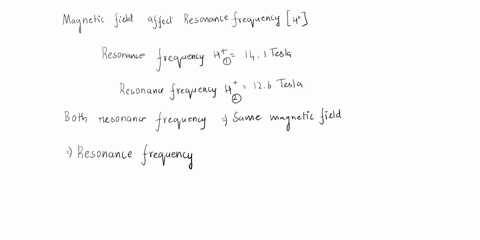 Magnetic field affect Resonance frequency [H⁺]
Resonance frequency H⁺① = 14.1 Tesla
Resonance frequency H⁺② = 12.6 Tesla
Both resonance frequency ⇒ Same magnetic field
⇒ Resonance frequency